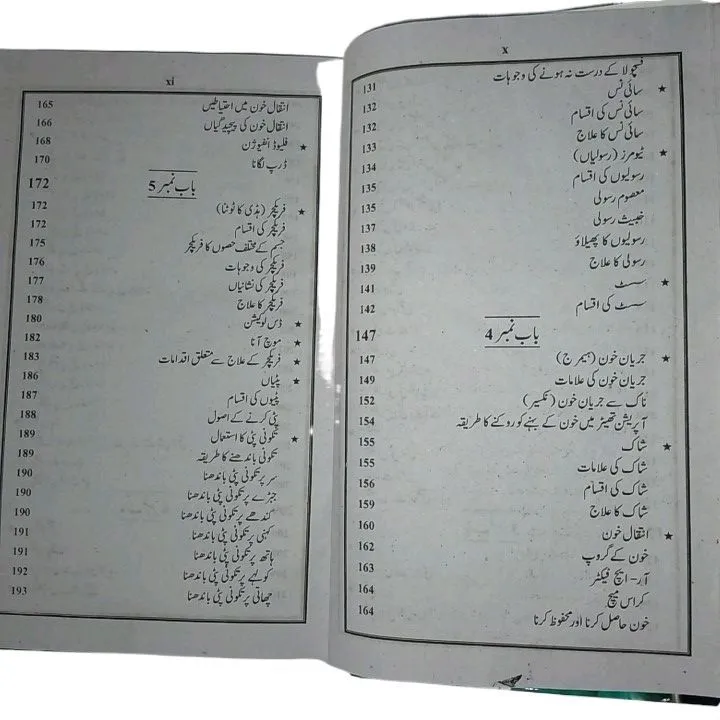 x
فسچولا کے درست نہ ہونے کی وجوہات 131
★ سائی نس 132
سائی نس کی اقسام 132
سائی نس کا علاج 133
★ ٹیومرز (رسولیاں) 134
رسولیوں کی اقسام 135
معصوم رسولی 135
خبیث رسولی 137
رسولیوں کا پھیلاؤ 138
رسولی کا علاج 139
★ سسٹ 141
سسٹ کی اقسام 142
باب نمبر 4 147
★ جریان خون (ہیمرج) 147
جریان خون کی علامات 149
ناک سے جریان خون (نکسیر) 152
آپریشن تھیٹر میں خون کے بہنے کو روکنے کا طریقہ 154
★ شاک 155
شاک کی علامات 155
شاک کی اقسام 156
شاک کا علاج 159
★ انتقال خون 160
خون کے گروپ 162
آر- ایچ فیکٹر 163
کراس میچ 164
خون حاصل کرنا اور محفوظ کرنا 164
xi
انتقال خون میں احتیاطیں 165
انتقال خون کی پیچیدگیاں 166
★ فلیوڈ انفیوژن 168
ڈرپ لگانا 170
باب نمبر 5 172
★ فریکچر (ہڈی کا ٹوٹنا) 172
فریکچر کی اقسام 172
جسم کے مختلف حصوں کا فریکچر 175
فریکچر کی وجوہات 176
فریکچر کی نشانیاں 177
فریکچر کا علاج 178
★ ڈس لوکیشن 180
★ موچ آنا 182
★ فریکچر کے علاج سے متعلق اقدامات 183
★ پٹیاں 186
پٹیوں کی اقسام 187
پٹی کرنے کے اصول 188
★ تکونی پٹی کا استعمال 189
تکونی باندھنے کا طریقہ 189
سر پر تکونی پٹی باندھنا 190
جبڑے پر تکونی پٹی باندھنا 190
کندھے پر تکونی پٹی باندھنا 190
کہنی پر تکونی پٹی باندھنا 191
ہاتھ پر تکونی پٹی باندھنا 191
کولہے پر تکونی پٹی باندھنا 192
چھاتی پر تکونی پٹی باندھنا 193